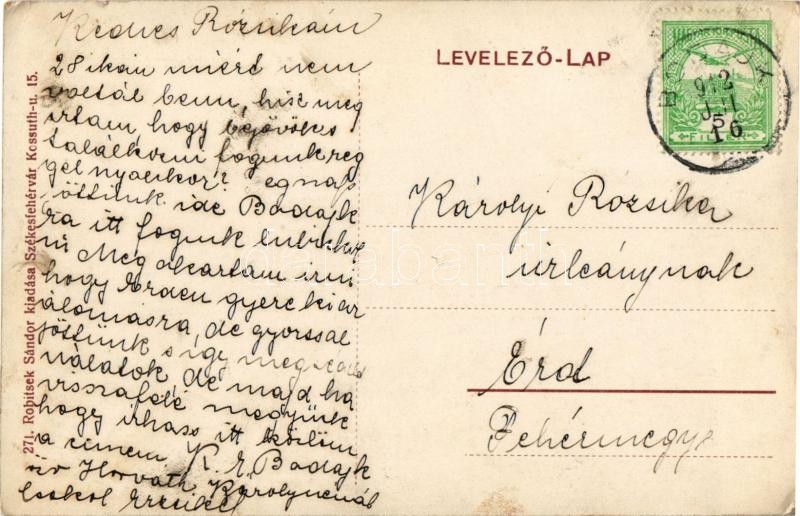 Kedves Rózsikám
28 ikán miért nem
voltál benn, hisz meg
irtam, hogy bejövök s
találkozni fogunk reg
gel nyolckor? Tegnap
jöttünk ide Bodajk
ra itt fogunk
ni Meg akartam irni
hogy Érden gyere ki az
álomásra, de gyorssal
jöttünk s igy
nálatok, de majd ha
visszafelé megyünk
hogy irhass itt közlöm
a cimem K. E. Bodajk
Horváth Károlynénál
csókol Erzsike
271. Robitsek Sándor kiadása Székesfehérvár Kossuth-u. 15.
LEVELEZŐ-LAP
MAGYAR KIR. POSTA
FILLÉR
BODAJK
912 JUL
5
16
Károlyi Rózsika
úrleánynak
Érd
Fehérmegye
darabanth